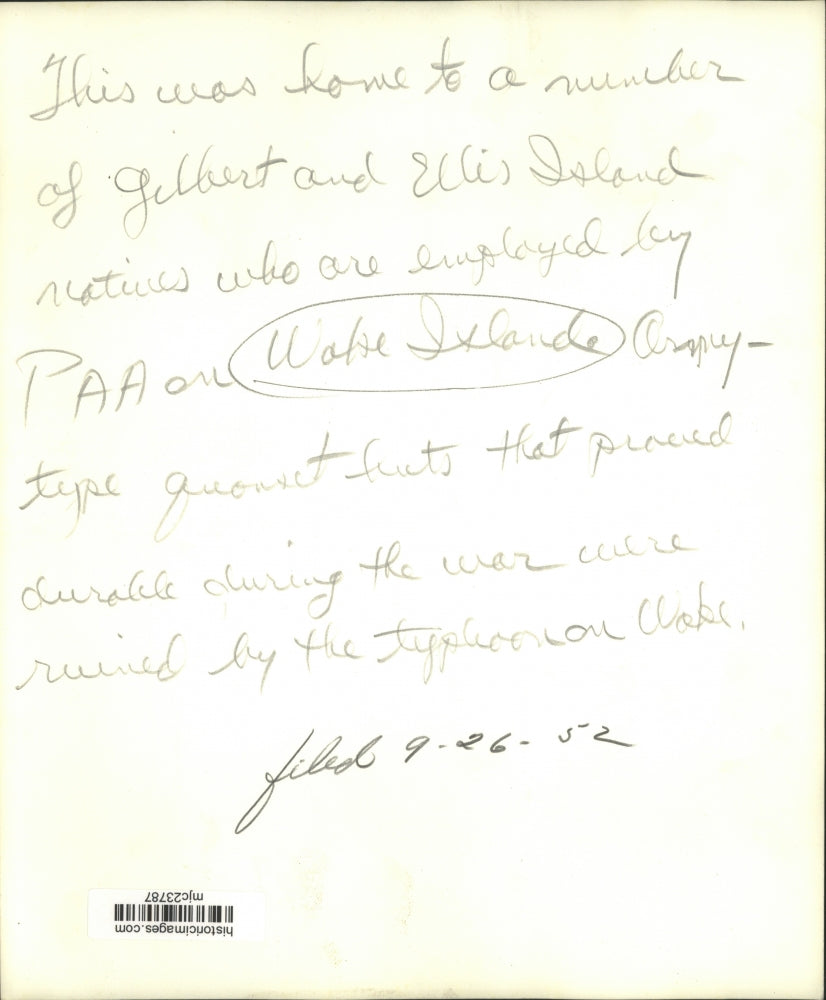 This was home to a number
of Gilbert and Ellis Island
natives who are employed by
PAA on Wake Island. Army-
type quonset huts that proved
durable during the war were
ruined by the typhoon on Wake.
filed 9-26-52
mjc23787
historicimages.com